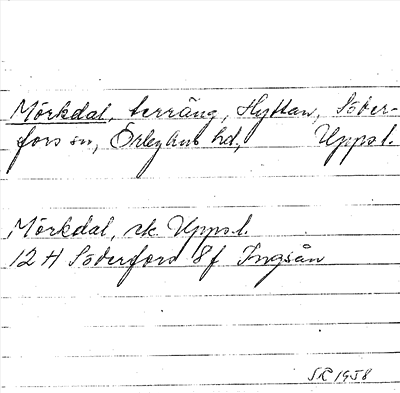 Mörkdal, terräng, Hyttan, Söder-
fors sn, Örbyhus hd, Uppsl.
Mörkdal, ek Uppsl.
12 H Söderfors 8f Ingsån
SR 1958